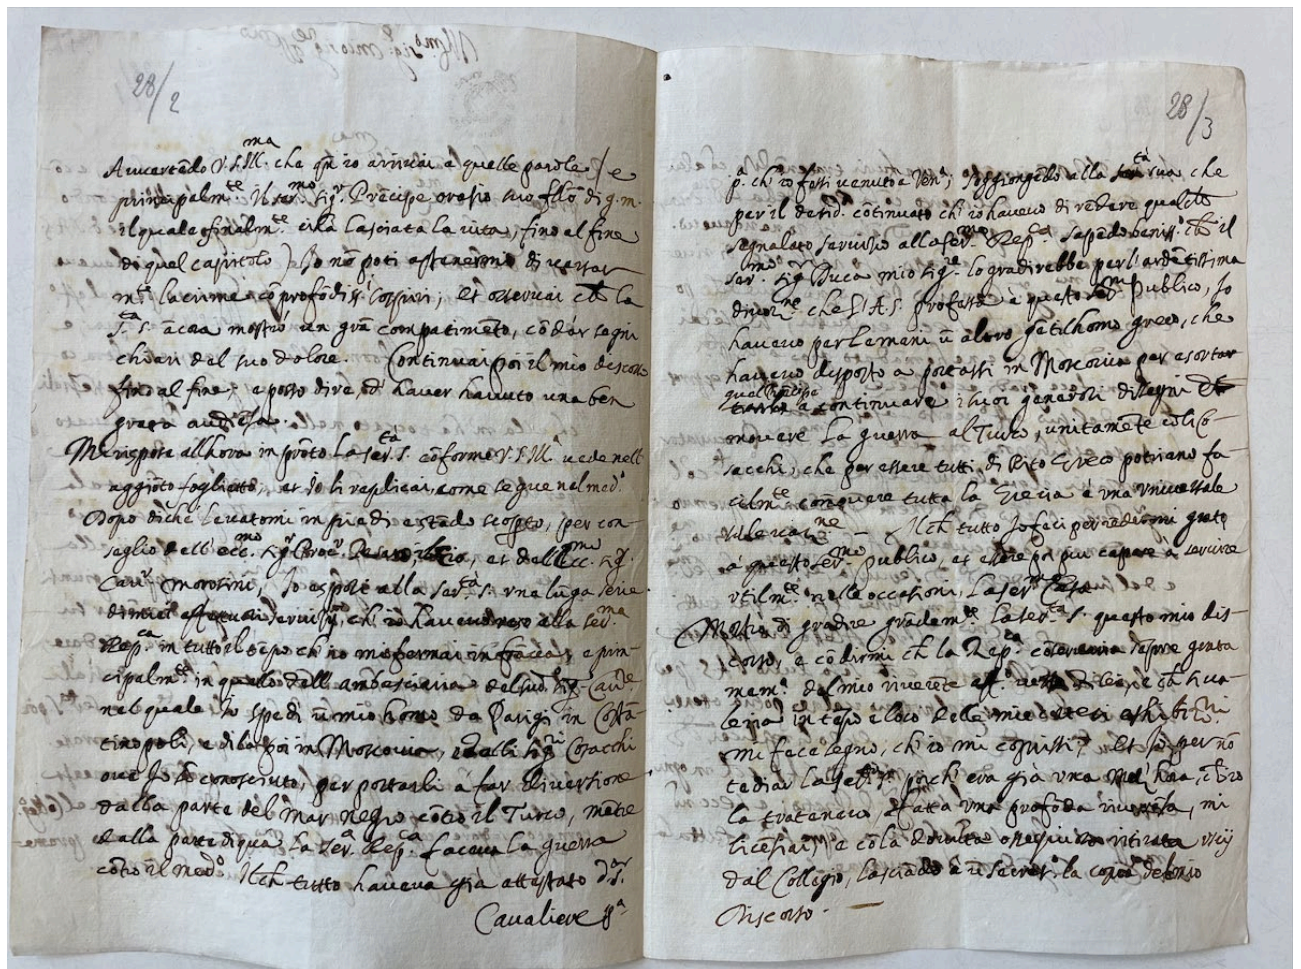 28/2
Auuertẽdo V.S.Ill.ma che qñ io arriuai a quelle parole / e
principalm.te Il ser.mo sig.r Prẽcipe orasio suo fllo di g.m.
il quale finalm.te ci hà lasciata la uita, fino al fine
di quel capitolo) Io nõ poti astenermi di uersar
m.te lacrime cõ profõdiss.i sospiri, et osseruai ch la
S.tà S. ãcora mostrò un grã compatimẽto, cõ dar segni
chiari del suo dolore. Continuai poi il mio discorso
fino al fine, e posso dire d' hauer hauuto una ben
grata audiẽsa.
Mi rispose all'hora in prõto la ser.tà S. cõforme V.S.Ill.a uede nell
aggiõto foglietto, et Io li replicai, come segue nel med.o
Dopo di che leuatomi in piedi e stãdo scop.to, per con-
seglio dell' ecc.mo sig.r Proc.r et dell' Ecc.mo sig.
Cau.r Morosini, Io esposi alla ser.tà S. vna lũga serie
di miei seruitij, ch' io haueuo reso alla ser.ma
Rep.ca in tutto il tẽpo ch' io mi fermai in frãcia, e prin-
cipalm.te in quello dell' ambasciaria del sud. sig. Cau.re
nel quale Io spedì ũ mio homo da Parigi in Costã-
tinopoli, e di là poi in Moscouia, e dalli sig.ri Cosacchi
oue Io sõ conosciuto, per portarli a far diuersione
dalla parte del mar negro cõtro il Turco, mẽtre
dalla parte di quà la ser.a Rep.ca faceua la guerra
cõtro il med.o Il ch tutto haueua già attestato d.o S.r
Cavaliere
28/3
p.a ch' io fossi uenuto a Ven.a; soggiongẽdo alla ser.tà sua che
per il desid. cõtinuato ch' io haueuo di rẽdere qualch
segnalato seruisio alla ser.ma Rep.ca sapẽdo beniss.o ch il
ser.mo sig.r Duca mio sig.re lo gradirebbe per l' ardẽtissima
diuot.ne che S.A.S. professa à questo ser.mo publico, Io
haueuo per le mani ũ altro gẽtilhomo greco, che
haueuo disposto a portarsi in Moscouia per esortar
quel Prẽcipe
a continuare i suoi generosi disegni di
mouere la guerra al Turco, unitamẽte cõ li Co-
sacchi, che per essere tutti di Rito Greco potriano fa-
cilm.te cõmouere tutta la Grecia à vna vniuersale
solleuat.ne — Il ch tutto Io feci per rẽdermi grato
à questo ser.mo publico, et essere poi piu capace à seruire
vtilm.te nelle occasioni, la ser.ma Casa
Mostrò di gradire grãdem.te la ser.tà S. questo mio dis-
corso, e cõ dirmi ch la Rep.ca cõseruaria sẽpre grata
mem.a del mio riuerẽte aff.o
in tẽpo e loco delle mie cortesi esibit.ni
mi fece segno, ch' io mi coprissi; et Io per nõ
tediar la ser.tà S. poich' era già vna meź hora, ch' io
la trattaneuo, fatta vna profõda riuerẽsa, mi
licẽtiai, e cõ la douuta ossequiosa ritirata vscij
dal Collegio, lasciãdo à ũ Secret.o la copia del mio
discorso. —